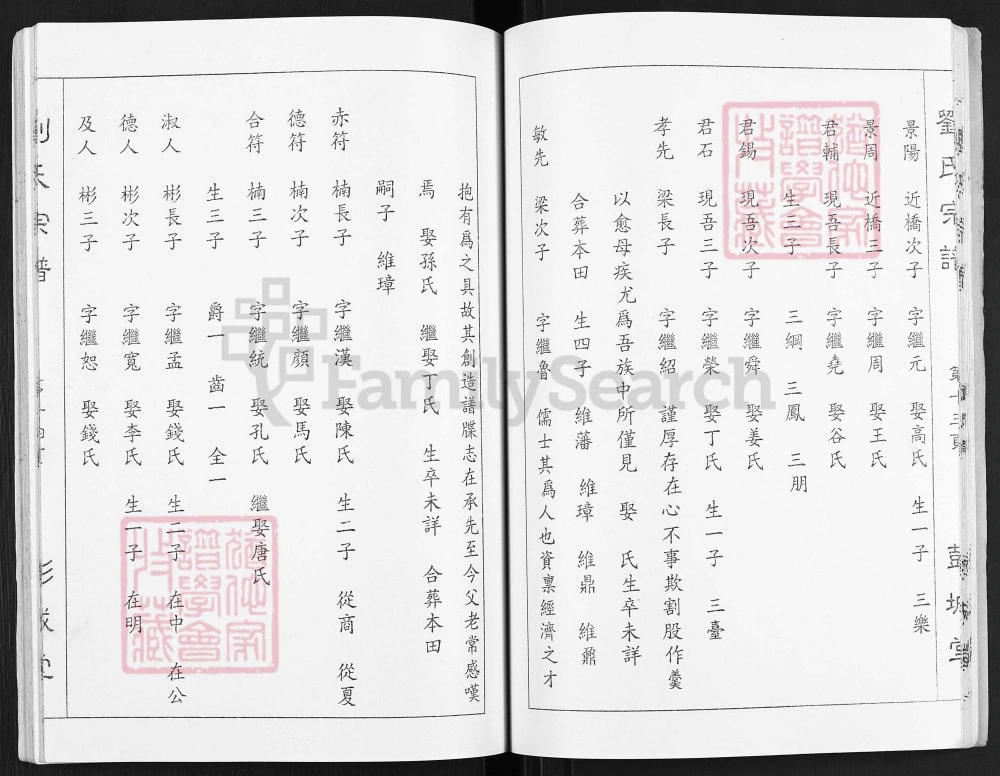 劉氏宗譜 第十三頁 彭城堂
景陽 近橋次子 字繼元 娶高氏 生一子 三樂
景周 近橋三子 字繼周 娶王氏
君輔 現吾長子 字繼堯 娶谷氏
生三子 三綱 三鳳 三朋
君錫 現吾次子 字繼舜 娶姜氏
君石 現吾三子 字繼榮 娶丁氏 生一子 三臺
孝先 梁長子 字繼紹 謹厚存在心不事欺割股作羹
以愈母疾尤爲吾族中所僅見 娶 氏生卒未詳
合葬本田 生四子 維藩 維璋 維鼎 維鼐
敏先 梁次子 字繼魯 儒士其爲人也資禀經濟之才
抱有爲之具故其創造譜牒志在承先至今父老常感嘆
焉 娶孫氏 繼娶丁氏 生卒未詳 合葬本田
嗣子 維璋
赤符 楠長子 字繼漢 娶陳氏 生二子 從商 從夏
德符 楠次子 字繼顔 娶馬氏
合符 楠三子 字繼統 娶孔氏 繼娶唐氏
生三子 爵一 齒一 全一
淑人 彬長子 字繼孟 娶錢氏 生二子 在中 在公
德人 彬次子 字繼寬 娶李氏 生一子 在明
及人 彬三子 字繼恕 娶錢氏
劉氏宗譜 彭城堂
FamilySearch